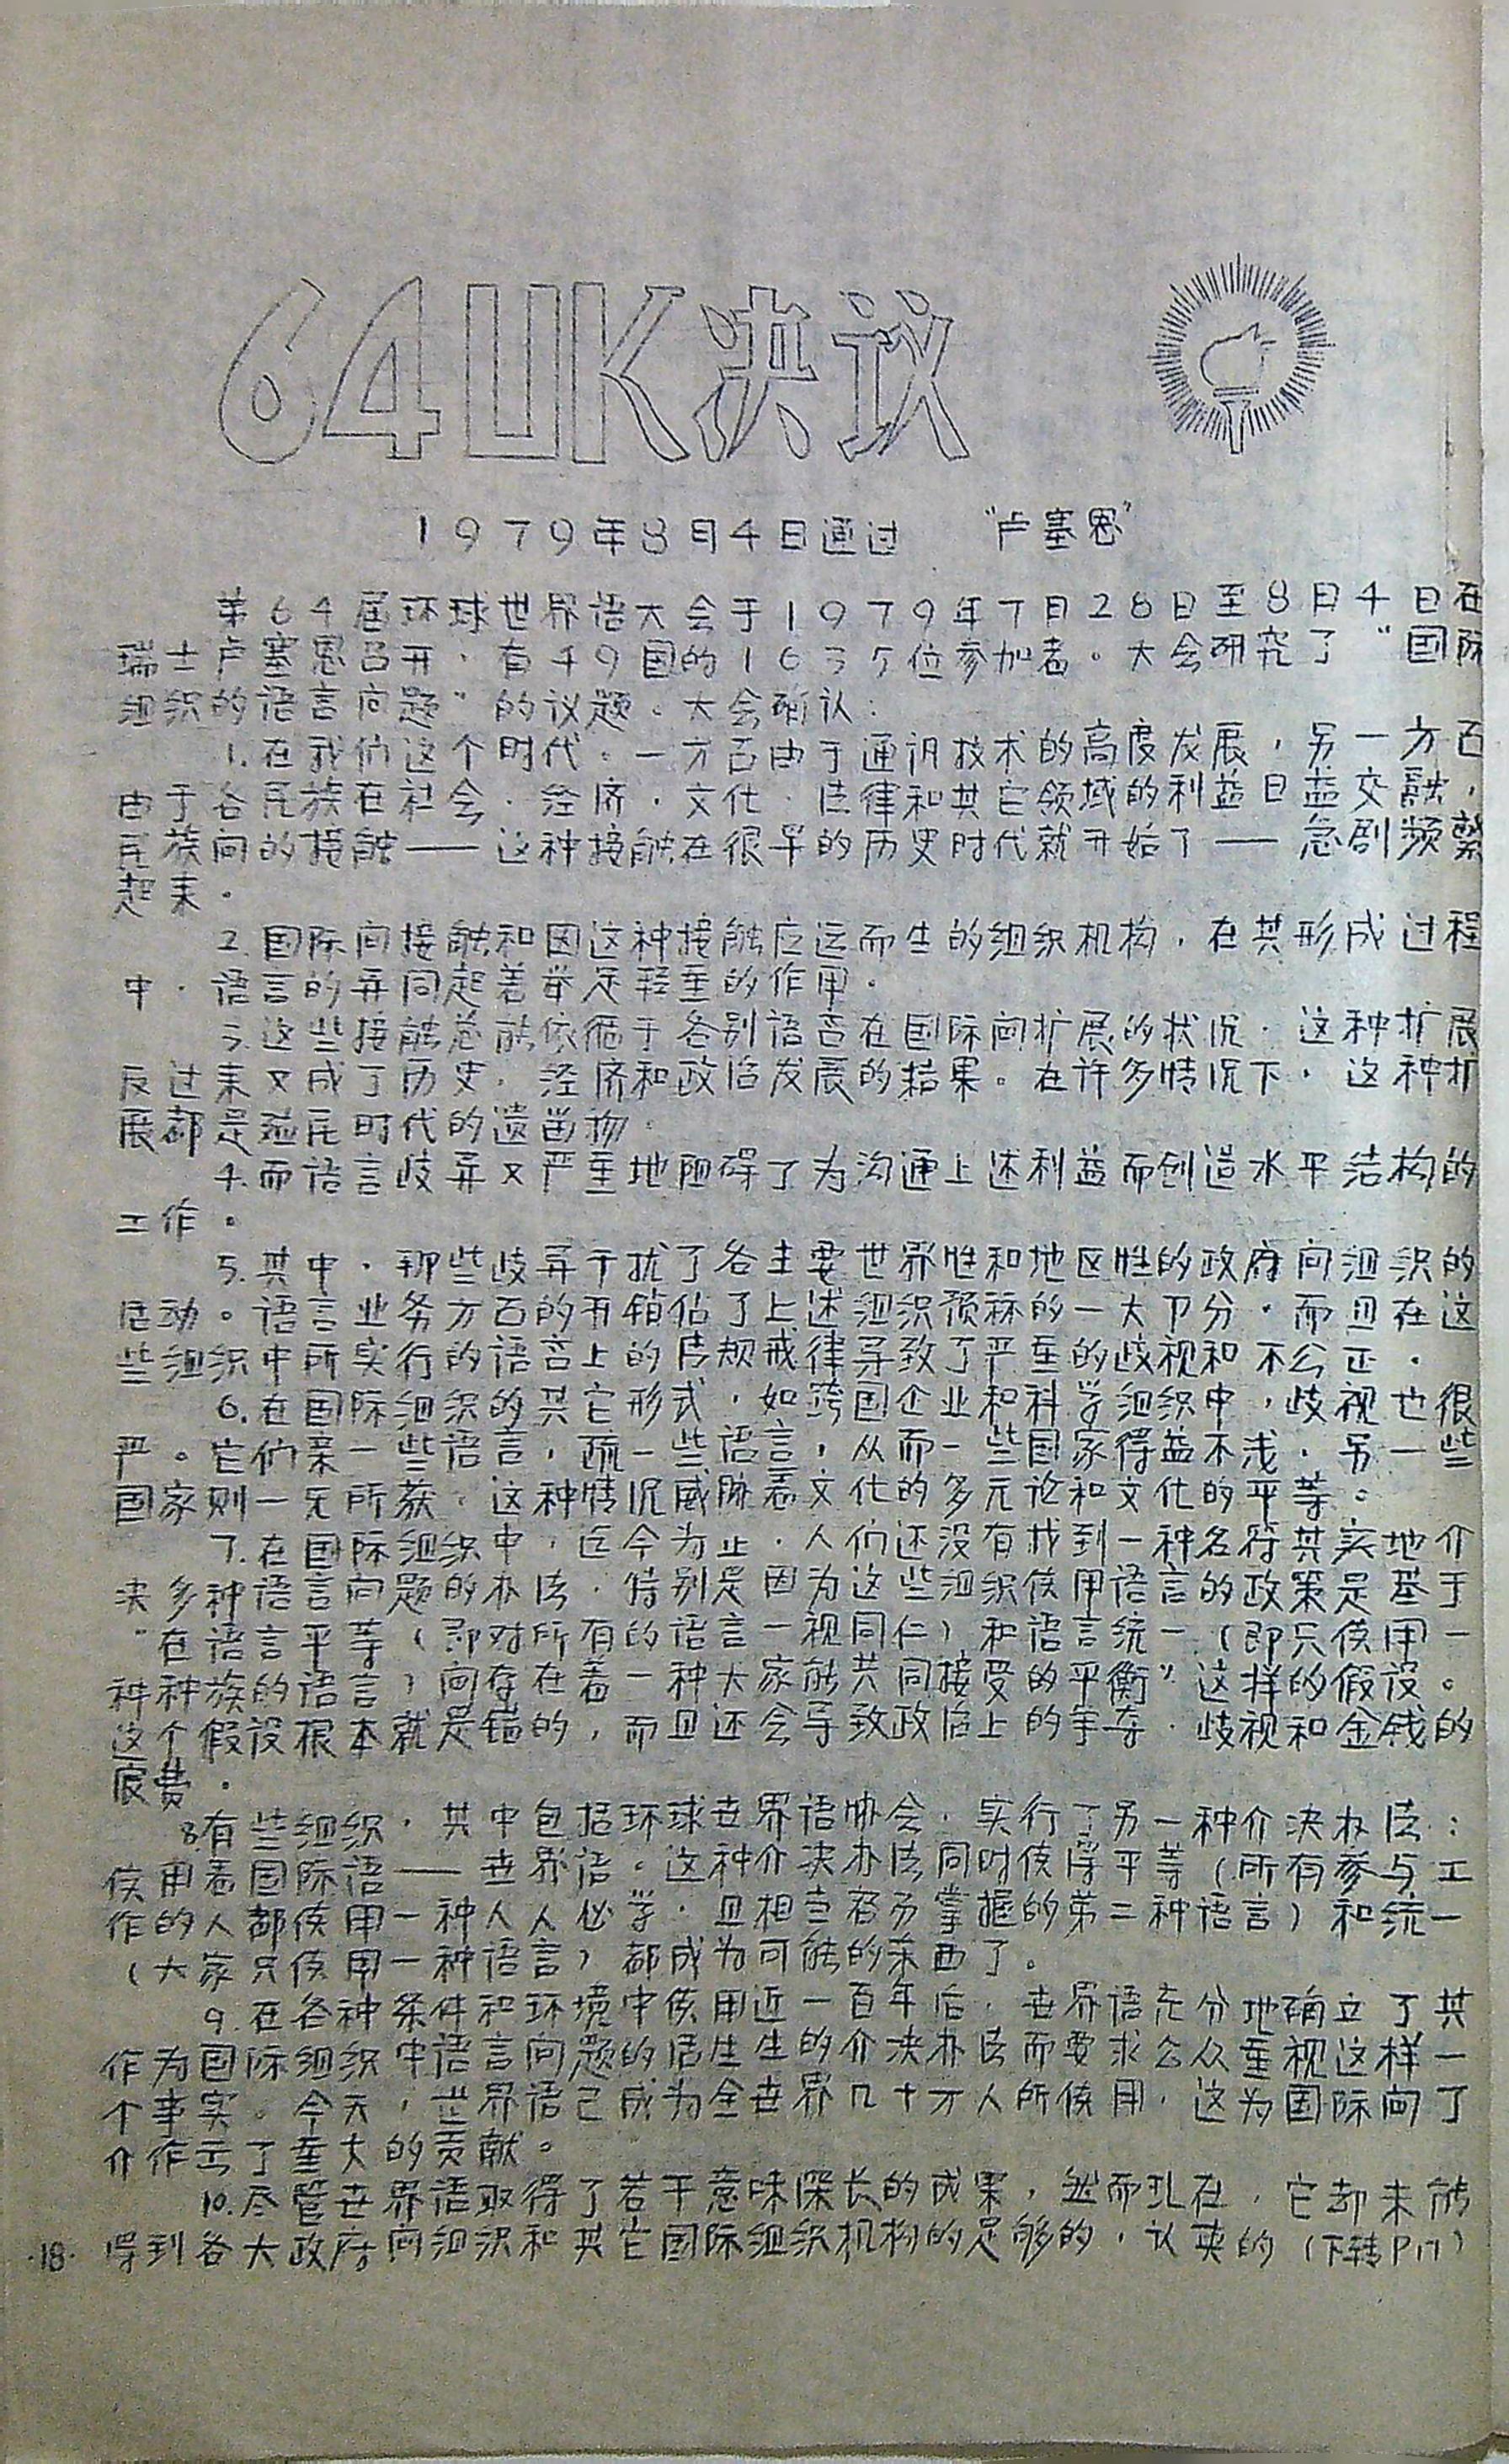 64UK决议
1979年8月4日通过 “卢塞恩”
第64届环球世界语大会于1979年7月28日至8月4日在
瑞士卢塞恩召开，有49国的1635位参加者。大会研究了“国际
组织的语言问题”的议题。大会确认：
1.在我们这个时代，一方面由于通讯技术的高度发展，另一方面
由于各民族在社会、经济、文化、法律和其它领域的利益日益交融，
民族间的接触——这种接触在很早的历史时代就开始了——急剧频繁
起来。
2.国际间接触和因这种接触应运而生的组织机构，在其形成过程
中，语言的异同起着举足轻重的作用。
3.这些接触总能依循于各别语言在国际间扩展的状况，这种扩展
反过来又成了历史、经济和政治发展的结果。在许多情况下，这种扩
展都是殖民时代的遗留物。
4.而语言歧异又严重地阻碍了为沟通上述利益而创造水平结构的
工作。
5.其中，那些歧异干扰了各主要世界性和地区性的政府间组织的
活动。语言业务方面的开销占了上述组织预算的一大卩分，而且在这
些组织中所实行的语言上的清规戒律导致了严重的歧视和不公正。
6.在国际组织的其它形式，如跨国企业和科学组织中，歧视也很
严。它们亲一些语言，疏一些语言，从而一些国家得益不浅，另一些
国家则一无所获，这种情况威胁着文化的多元论和文化的平等。
7.在国际组织中，迄今为止，人们还没有找到一种名符其实地介
决多种语言问题的办法，特别是因为这些组织使用语言的政策是基于
“在语言平等（即对所有的语言一视同仁）和语言统一（即只使用一
种种族的语言）间存在着一种大家能共同接受的平衡”这样的假设。
这个假设根本就是错的，而且还会导致政治上的争夺、歧视和金钱的
废费。
8.有些组织，其中包括环球世界语协会，实行了另一种介决办法：
使用着国际语——世界语。这种介决办法同时使得平等（所有参与工
作的人都使用一种人人必学，且相当容易掌握的第二种语言）和统一
（大家只使用一种语言）都成为可能的东西了。
9.在各种条件和环境中使用近一百年后，世界语充分地确立了其
作为国际组织中语言问题的活生生的介决办法而要求公众重视这样一
个事实。今天，世界语已成为全世界几十万人所使用，这为国际间了
介作出了重大的贡献。
10.尽管世界语取得了若干意味深长的成果，然而现在，它却未能
得到各大政府间组织和其它国际组织机构的足够的，认真的（下转P17）
·18·